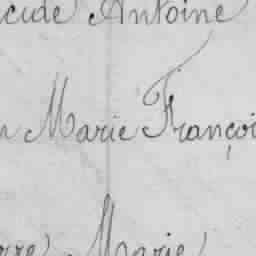 cide Antoine
n Marie Françoi
rre Marie